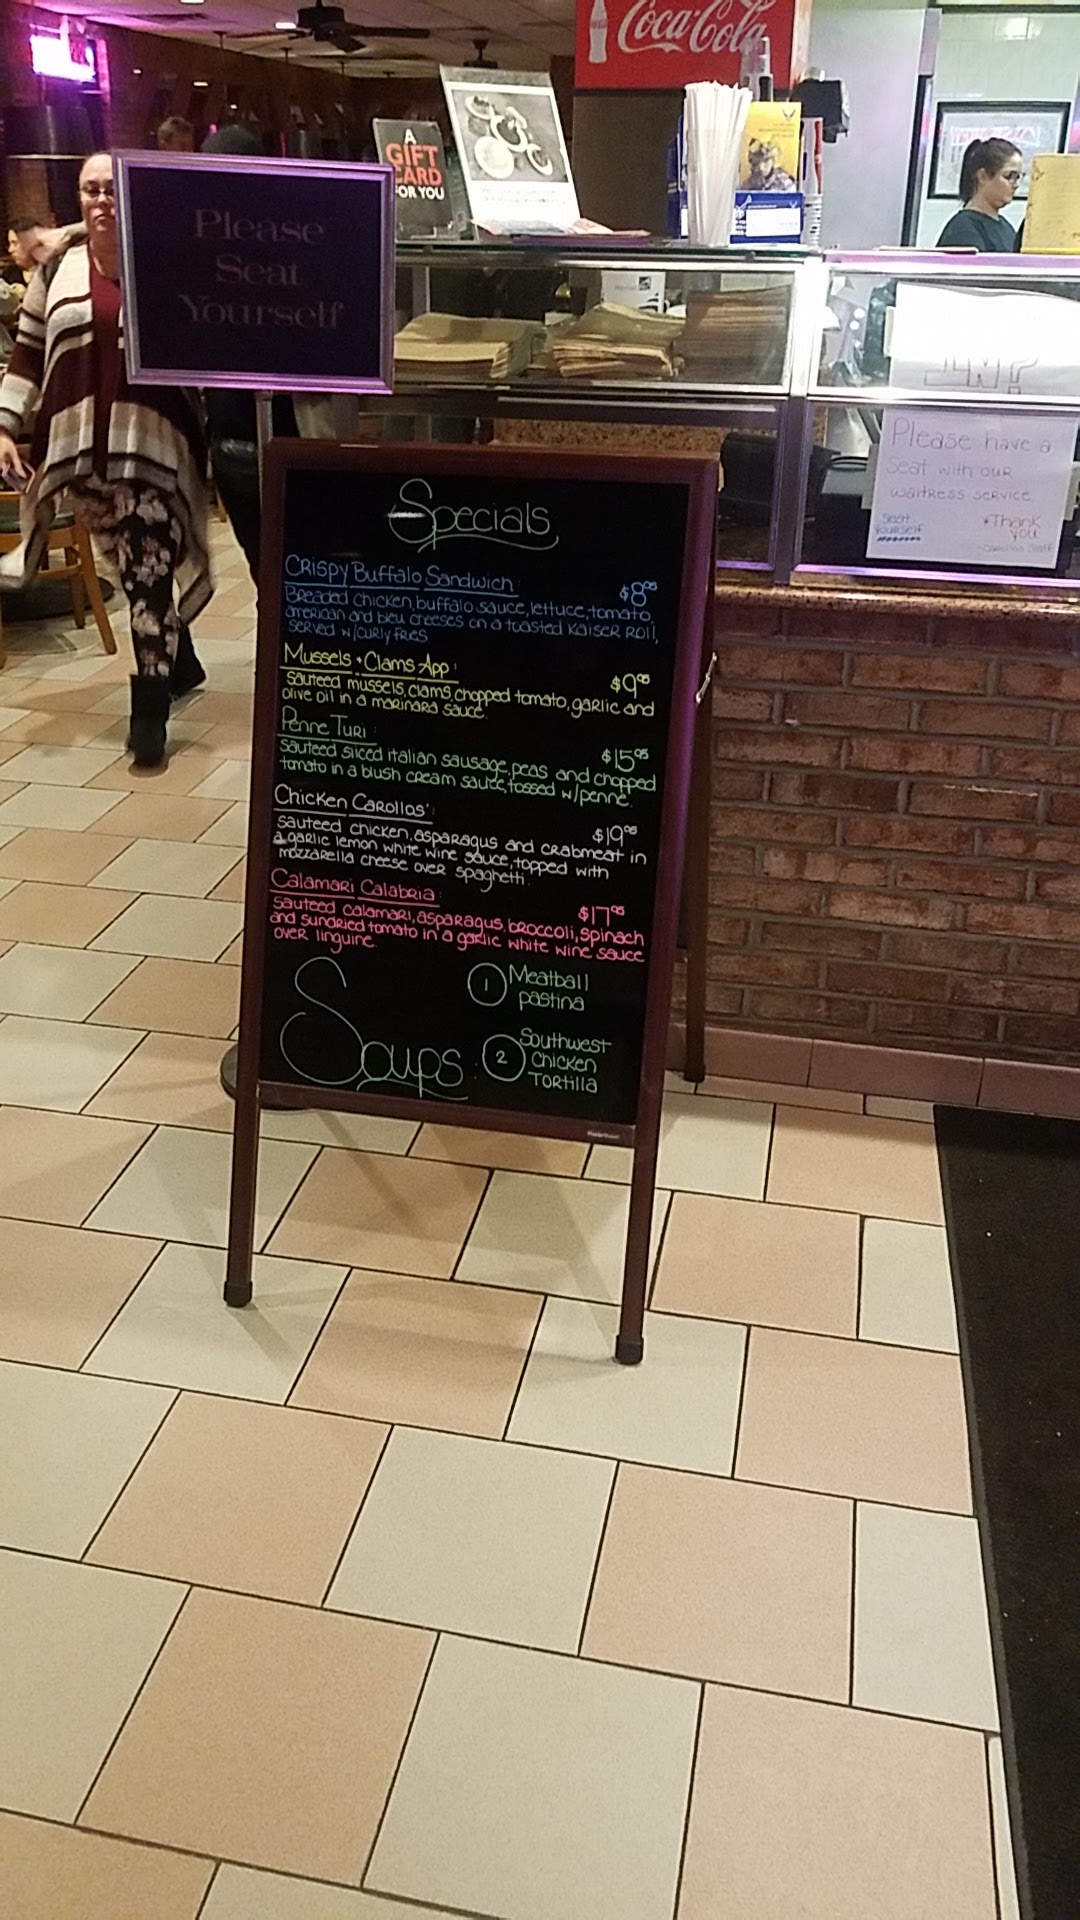 Coca-Cola
A
GIFT
CARD
FOR YOU
Please
Seat
Yourself
Please have a
seat with our
waitress service.
Seat
yourself
*Thank
you
Specials
Crispy Buffalo Sandwich:
$8.95
Breaded chicken, buffalo sauce, lettuce, tomato,
american and bleu cheeses on a toasted Kaiser Roll,
served w/curly fries
Mussels + Clams App:
$9.95
Sauteed mussels, clams, chopped tomato, garlic and
olive oil in a marinara sauce.
Penne Turi:
$15.95
Sauteed sliced italian sausage, peas, and chopped
tomato in a blush cream sauce, tossed w/penne.
Chicken Carollos':
$19.95
Sauteed chicken, asparagus and crabmeat in
a garlic lemon white wine sauce, topped with
mozzarella cheese over spaghetti.
Calamari Calabria:
$17.95
Sauteed calamari, asparagus, broccoli, spinach
and sundried tomato in a garlic white wine sauce
over linguine.
Soups:
1 Meatball
pastina
2 Southwest
Chicken
Tortilla